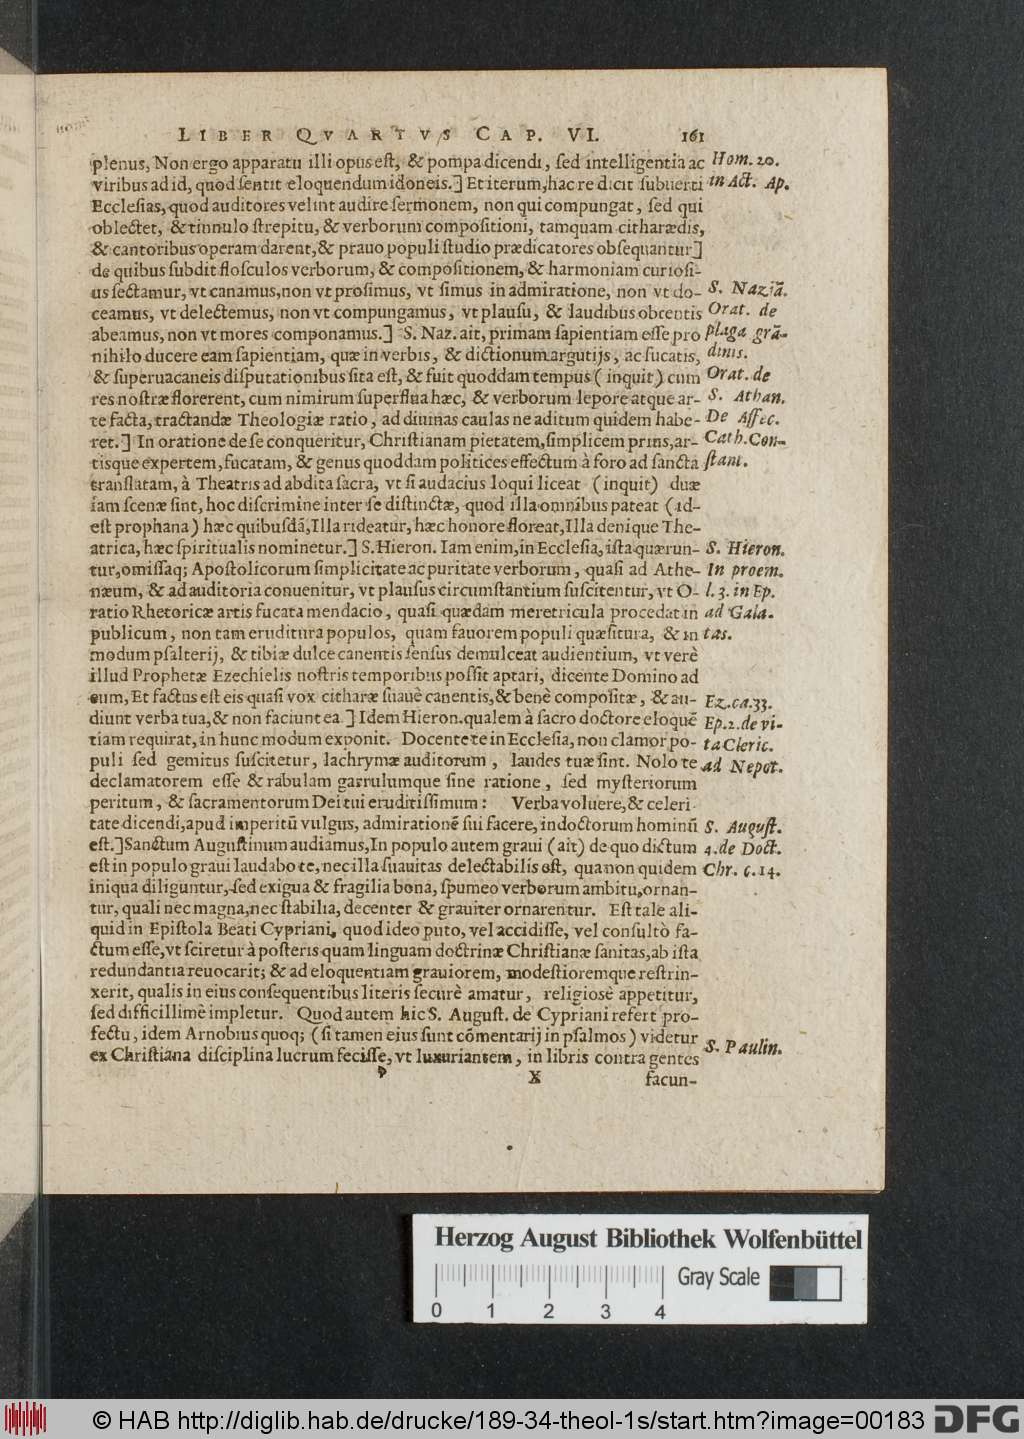 LIBER QVARTVS CAP. VI. 161
plenus, Non ergo apparatu illi opus est, & pompa dicendi, sed intelligentia ac
viribus ad id, quod sentit eloquendum idoneis.] Et iterum, hac re dicit subuerti
Ecclesias, quod auditores velint audire sermonem, non qui compungat, sed qui
oblectet, & tinnulo strepitu, & verborum compositioni, tamquam citharædis,
& cantoribus operam darent, & prauo populi studio prædicatores obsequantur]
de quibus subdit flosculos verborum, & compositionem, & harmoniam curiosi-
us sectamur, vt canamus, non vt prosimus, vt simus in admiratione, non vt do-
ceamus, vt delectemus, non vt compungamus, vt plausu, & laudibus obtentis
abeamus, non vt mores componamus.] S. Naz. ait, primam sapientiam esse pro
nihilo ducere eam sapientiam, quæ in verbis, & dictionum argutijs, ac fucatis,
& superuacaneis disputationibus sita est, & fuit quoddam tempus (inquit) cum
res nostræ florerent, cum nimirum superflua hæc, & verborum lepore atque ar-
te facta, tractandæ Theologiæ ratio, ad diuinas caulas ne aditum quidem habe-
ret.] In oratione de se conqueritur, Christianam pietatem, simplicem prius, ar-
tisque expertem, fucatam, & genus quoddam politices effectum à foro ad sancta
translatam, à Theatris ad abdita sacra, vt si audacius loqui liceat (inquit) duæ
iam scenæ sint, hoc discrimine inter se distinctæ, quod illa omnibus pateat (id-
est prophana) hæc quibusdā, Illa rideatur, hæc honore floreat, Illa denique The-
atrica, hæc spiritualis nominetur.] S. Hieron. Iam enim, in Ecclesia, ista quærun-
tur, omissaq; Apostolicorum simplicitate ac puritate verborum, quasi ad Athe-
næum, & ad auditoria conuenitur, vt plausus circumstantium suscitentur, vt O-
ratio Rhetoricæ artis fucata mendacio, quasi quædam meretricula procedat in
publicum, non tam eruditura populos, quam fauorem populi quæsitura, & in
modum psalterij, & tibiæ dulce canentis sensus demulceat audientium, vt verè
illud Prophetæ Ezechielis nostris temporibus possit aptari, dicente Domino ad
eum, Et factus est eis quasi vox citharæ suauè canentis, & benè compositæ, & au-
diunt verba tua, & non faciunt ea.] Idem Hieron. qualem à sacro doctore eloquē
tiam requirat, in hunc modum exponit. Docente te in Ecclesia, non clamor po-
puli sed gemitus suscitetur, lachrymæ auditorum, laudes tuæ sint. Nolo te
declamatorem esse & rabulam garrulumque sine ratione, sed mysteriorum
peritum, & sacramentorum Dei tui eruditissimum: Verba voluere, & celeri
tate dicendi, apud imperitū vulgus, admirationē sui facere, indoctorum hominū
est.] Sanctum Augustinum audiamus, In populo autem graui (ait) de quo dictum
est in populo graui laudabo te, nec illa suauitas delectabilis est, qua non quidem
iniqua diliguntur, sed exigua & fragilia bona, spumeo verborum ambitu, ornan-
tur, quali nec magna, nec stabilia, decenter & grauiter ornarentur. Est tale ali-
quid in Epistola Beati Cypriani, quod ideo puto, vel accidisse, vel consultò fa-
ctum esse, vt sciretur à posteris quam linguam doctrinæ Christianæ sanitas, ab ista
redundantia reuocarit; & ad eloquentiam grauiorem, modestioremque restrin-
xerit, qualis in eius consequentibus literis securè amatur, religiosè appetitur,
sed difficillimè impletur. Quod autem hic S. August. de Cypriani refert pro-
fectu, idem Arnobius quoq; (si tamen eius sunt cōmentarij in psalmos) videtur
ex Christiana disciplina lucrum fecisse, vt luxuriantem, in libris contra gentes
X facun-
Hom. 20.
in Act. Ap.
S. Naziā.
Orat. de
plaga grā-
dinis.
Orat. de
S. Athan.
De Affec.
Cath. Con-
stant.
S. Hieron.
In proem.
l. 3. in Ep.
ad Gala-
tas.
Ez. ca. 33.
Ep. 2. de vi-
ta Cleric.
ad Nepot.
S. August.
4. de Doct.
Chr. c. 14.
S. Paulin.
Herzog August Bibliothek Wolfenbüttel
0 1 2 3 4
Gray Scale
© HAB http://diglib.hab.de/drucke/189-34-theol-1s/start.htm?image=00183
DFG